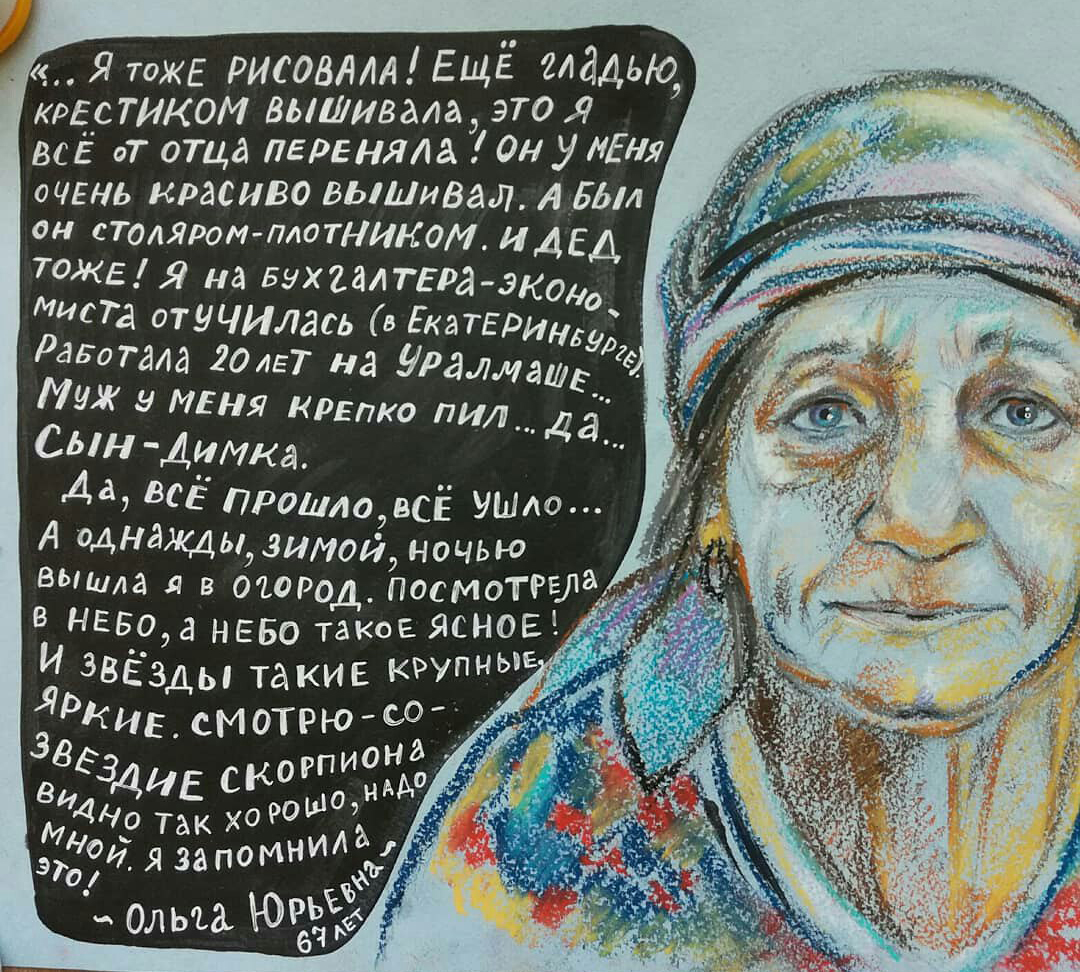 «... Я тоже рисовала! Ещё гладью,
крестиком вышивала, это я
всё от отца переняла! Он у меня
очень красиво вышивал. А был
он столяром-плотником. и дед
тоже! Я на бухгалтера-эконо-
миста отучилась (в Екатеринбурге).
Работала 20 лет на Уралмаше...
Муж у меня крепко пил... да...
Сын - Димка.
Да, всё прошло, всё ушло...
А однажды, зимой, ночью
вышла я в огород. Посмотрела
в небо, а небо такое ясное!
И звёзды такие крупные,
яркие. смотрю - со-
звездие скорпиона
видно так хорошо, надо
мной. я запомнила
это!
~ Ольга Юрьевна ~
67 лет